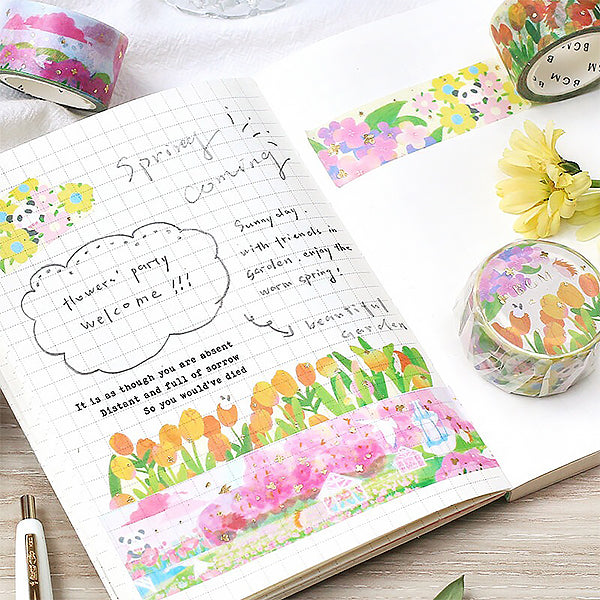 Spring
coming
Sunnyday.
with friends in
garden, enjoy the
warm spring!
beautiful
garden
flowers' party
welcome !!!
It is as though you are absent
Distant and full of sorrow
So you would've died
BGM